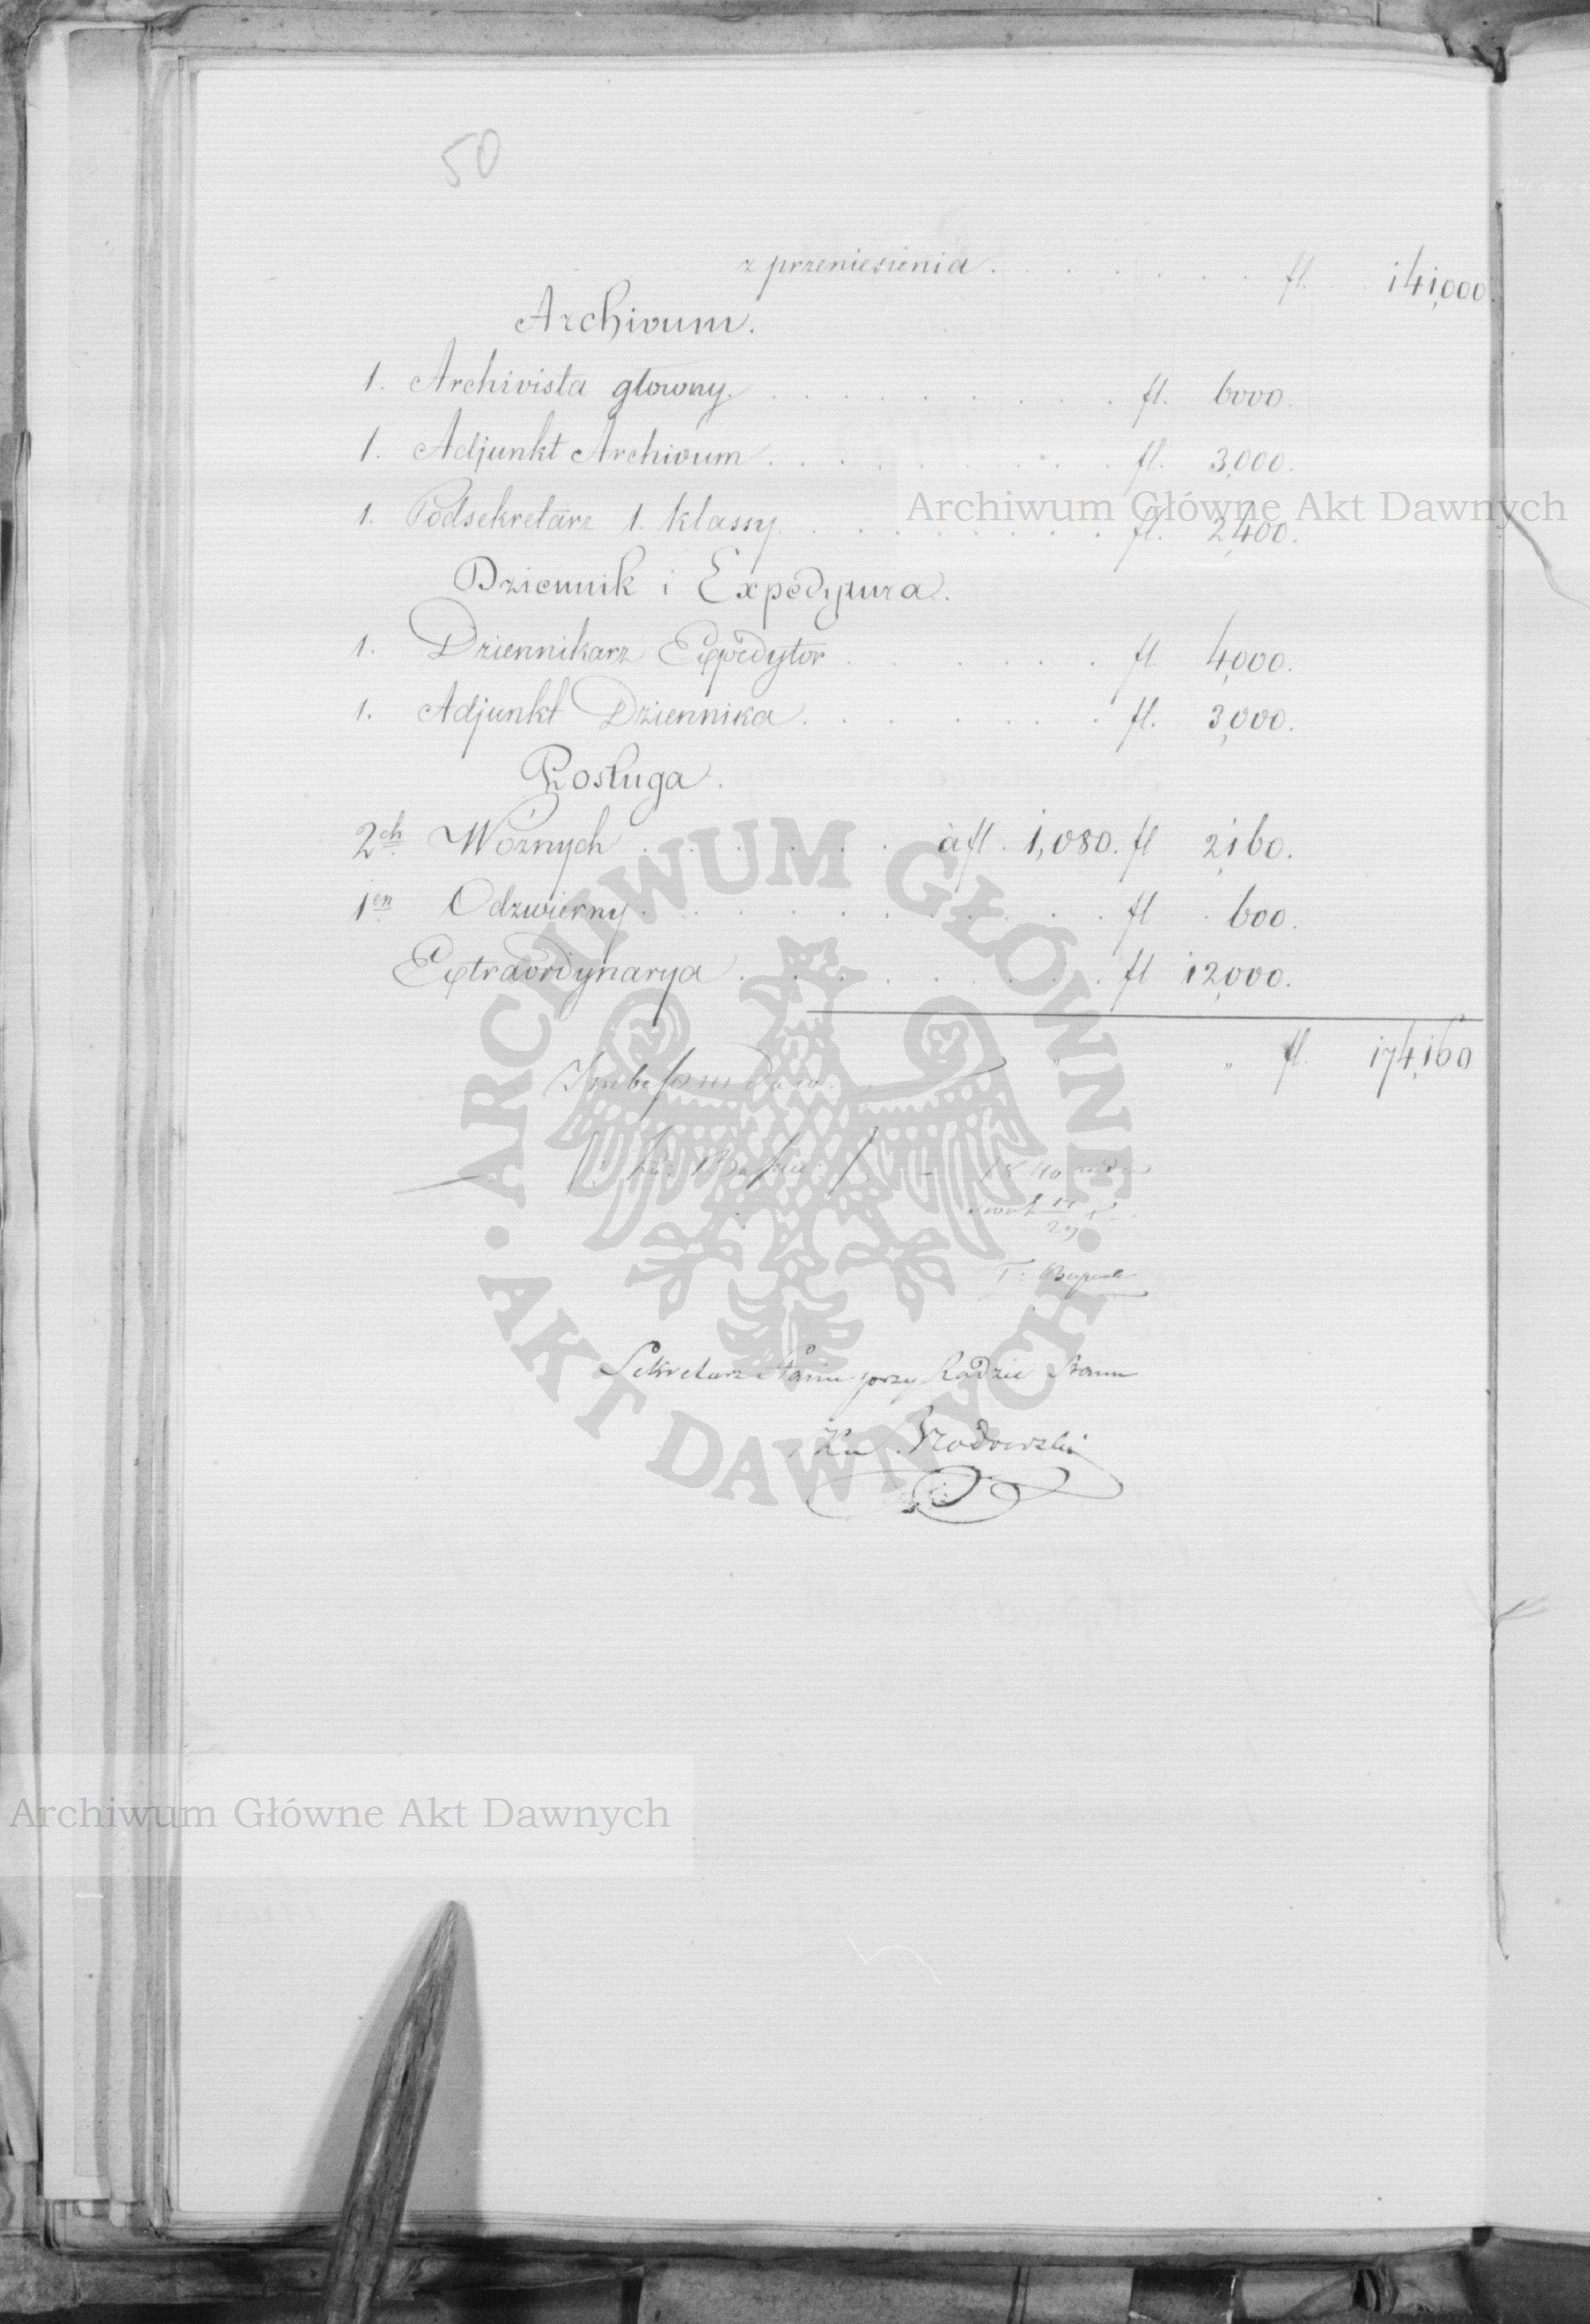 50
z przeniesienia . . . . . . . fl. 141,000.
Archivum.
1. Archivista głowny. . . . . . . . . . fl. 6000.
1. Adjunkt Archivum . . . . . . . . . fl. 3,000.
1. Podsekretarz 1. klassy . . . . . . . . fl. 2,400.
Dziennik i Expedytura.
1. Dziennikarz Expedytor . . . . . . fl. 4,000.
1. Adjunkt Dziennika . . . . . . fl. 3,000.
Posługa.
2ch Woźnych . . . . . . à fl. 1,080. fl 2,160.
1en Odzwierny . . . . . . . . . fl . 600.
Extraordynarya . . . . . . . . fl 12,000.
" " fl. 174,160
T:
Sekretarz Stanu przy Radzie Stanu
Archiwum Główne Akt Dawnych
ARCHIWUM GŁÓWNE AKT DAWNYCH
Archiwum Główne Akt Dawnych